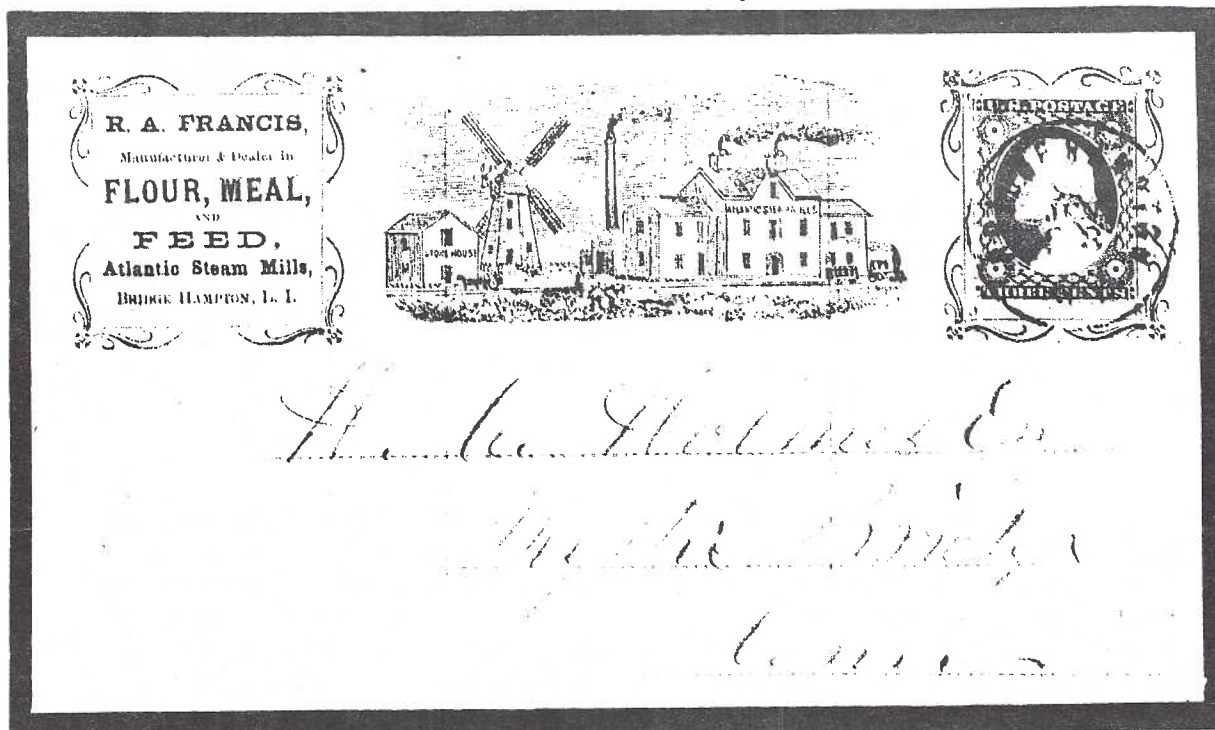 R. A. FRANCIS,
Manufacturer & Dealer in
FLOUR, MEAL,
AND
FEED,
Atlantic Steam Mills,
BRIDGE HAMPTON, L. I.
STORE HOUSE
ATLANTIC STEAM MILLS
U.S. POSTAGE
THREE CENTS
Holmes
Mystic Bridge
Conn